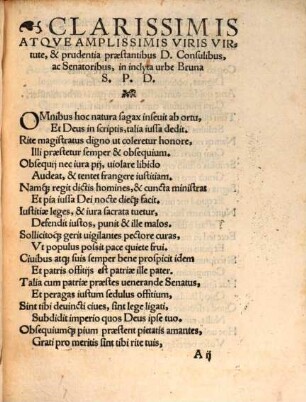 CLARISSIMIS
ATQVE AMPLISSIMIS VIRIS VIR-
tute, & prudentia præstantibus D. Consulibus,
ac Senatoribus, in inclyta urbe Bruna
S. P. D.
OMnibus hoc natura sagax inseuit ab ortu,
Et Deus in scriptis, talia iussa dedit.
Rite magistratus digno ut coleretur honore,
Illi præstetur semper & obsequium.
Obsequij nec iura pij, uiolare libido
Audeat, & tentet frangere iustitiam.
Namq; regit dictis homines, & cuncta ministrat
Et pia iussa Dei nocte dieq; facit.
Iustitiæ leges, & iura sacrata tuetur,
Defendit iustos, punit & ille malos.
Sollicitoq; gerit uigilantes pectore curas,
Vt populus possit pace quiete frui.
Ciuibus atq; suis semper bene prospicit idem
Et patris offitijs est patriæ ille pater.
Talia cum patriæ præstes uenerande Senatus,
Et peragas iustum sedulus offitium,
Sint tibi deuincti ciues, sint lege ligati,
Subdidit imperio quos Deus ipse tuo.
Obsequiumq; pium præstent pietatis amantes,
Grati pro meritis sint tibi rite tuis,
A ij